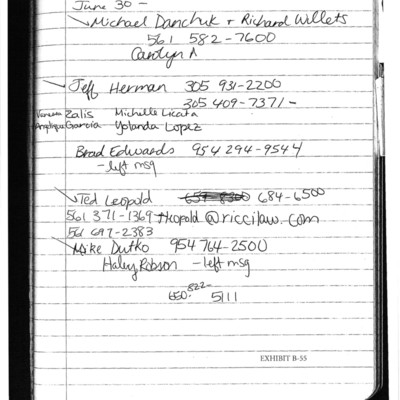 June 30 -
Michael Danchuk + Richard Willets
561 582-7600
Carolyn A
Jeff Herman 305 931-2200
305 409-7371 -
Vanessa Zalis Michelle Licata
Angelique Garcia Yolanda Lopez
Brad Edwards 954 294-9544
- left msg
Ted Leopold 684-6500
561 371-1369 tleopold@riccilaw.com
561 697-2383
Mike Dutko 954 764-2500
Haley Robson - left msg
822-
5111
EXHIBIT B-55